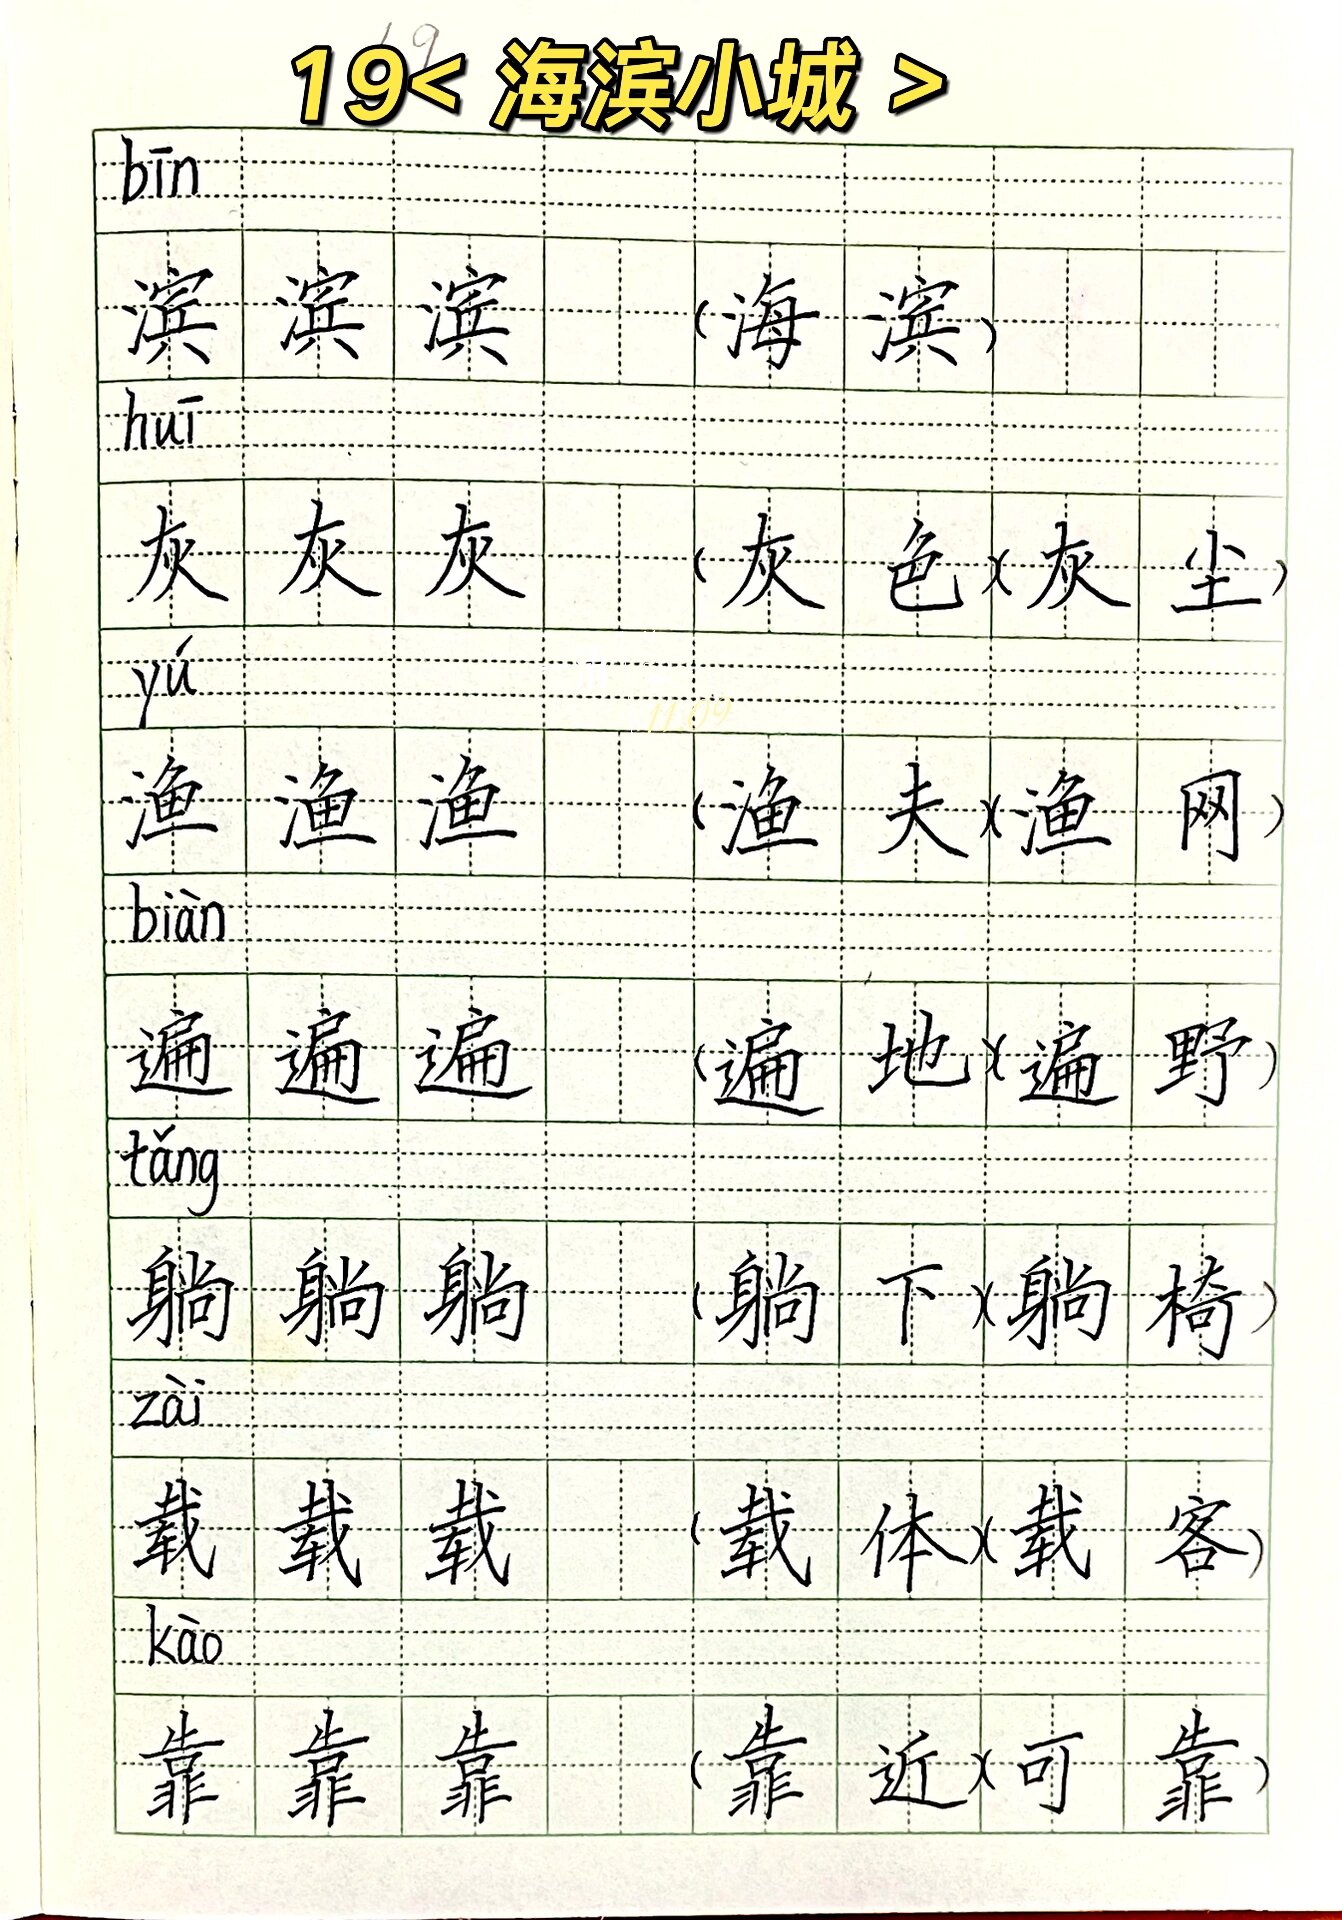 19
19< 海滨小城 >
bīn
滨 滨 滨 (海 滨)
huī
灰 灰 灰 (灰 色)(灰 尘)
yú
11 09
渔 渔 渔 (渔 夫)(渔 网)
biàn
遍 遍 遍 (遍 地)(遍 野)
tǎng
躺 躺 躺 (躺 下)(躺 椅)
zài
载 载 载 (载 体)(载 客)
kào
靠 靠 靠 (靠 近)(可 靠)